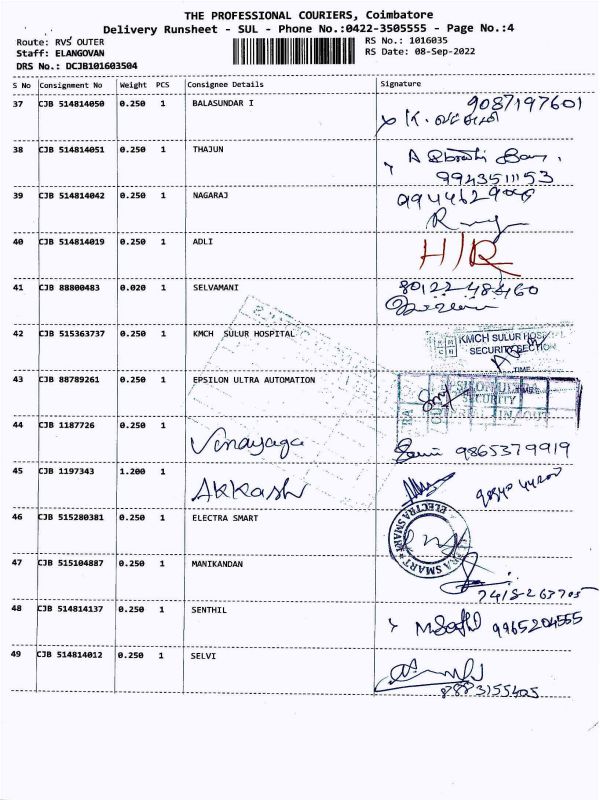 THE PROFESSIONAL COURIERS, Coimbatore
Delivery Runsheet - SUL - Phone No.:0422-3505555 - Page No.:4
Route: RVS OUTER RS No.: 1016035
Staff: ELANGOVAN RS Date: 08-Sep-2022
DRS No.: DCJB101603504
S No Consignment No Weight PCS Consignee Details Signature
37 CJB 514814050 0.250 1 BALASUNDAR I 9087197601
38 CJB 514814051 0.250 1 THAJUN
9943511153
39 CJB 514814042 0.250 1 NAGARAJ
40 CJB 514814019 0.250 1 ADLI H/R
41 CJB 88800483 0.020 1 SELVAMANI 80122-48460
42 CJB 515363737 0.250 1 KMCH SULUR HOSPITAL KMCH SULUR HOSPITAL
SECURITY SECTION
TIME
43 CJB 88789261 0.250 1 EPSILON ULTRA AUTOMATION
SECURITY
IN/OUT
44 CJB 1187726 0.250 1 Vinayaga 9865379919
45 CJB 1197343 1.200 1 Akkash
46 CJB 515280381 0.250 1 ELECTRA SMART ELECTRA SMART
47 CJB 515104887 0.250 1 MANIKANDAN
48 CJB 514814137 0.250 1 SENTHIL 9965204555
49 CJB 514814012 0.250 1 SELVI
8883155405